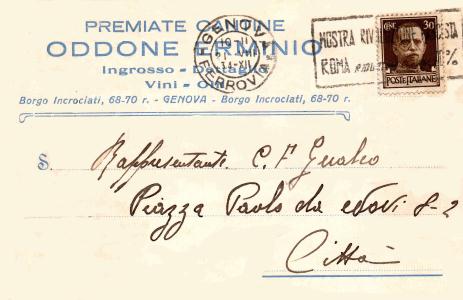 PREMIATE CANTINE
ODDONE ERMINIO
Ingrosso - Dettaglio
Vini - Olii
Borgo Incrociati, 68-70 r. - GENOVA - Borgo Incrociati, 68-70 r.
GENOVA
FERROVIA
MOSTRA
ROMA
CENT. 30
POSTE ITALIANE
S.
Rappresentante C. F.
Piazza Paolo da Novi 8-2
Città